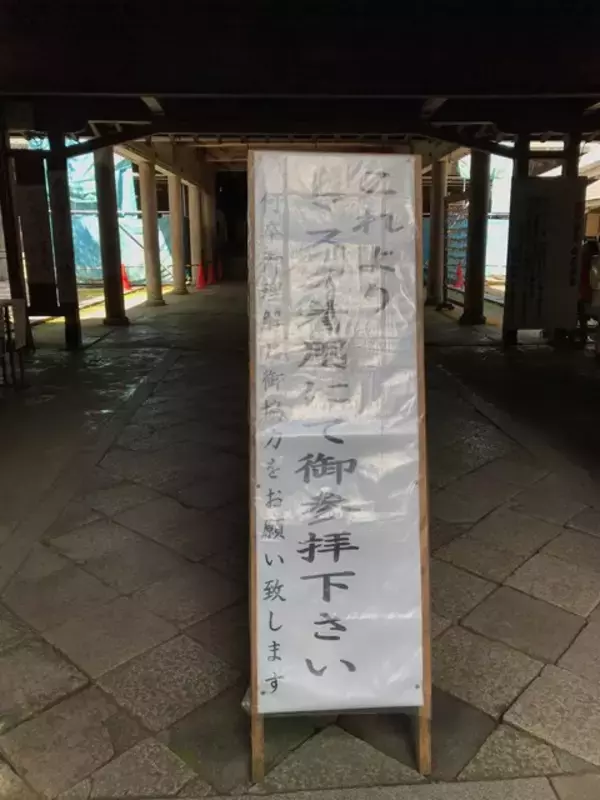 これより
マスク着用にて御参拝下さい
何卒御理解と御協力をお願い致します